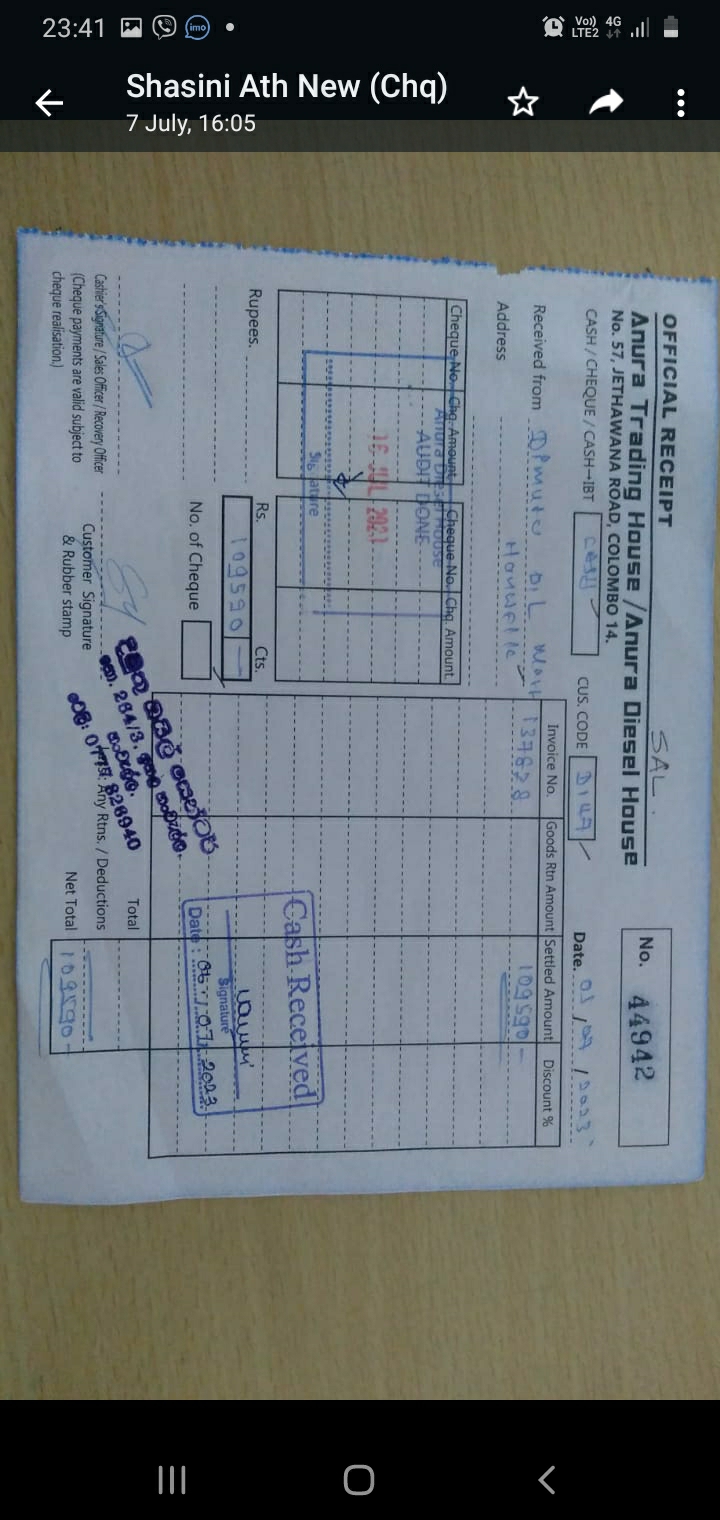 23:41
imo
Vo)) 4G
LTE2
Shasini Ath New (Chq)
7 July, 16:05
SAL.
OFFICIAL RECEIPT
No. 44942
Anura Trading House /Anura Diesel House
No. 57, JETHAWANA ROAD, COLOMBO 14.
CASH / CHEQUE / CASH-IBT CASH
CUS. CODE
Date. / 2023
Received from OIL Mart
Address Hanwelle
Invoice No. Goods Rtn Amount Settled Amount Discount %
137828 109590-
Cheque No. Chq. Amount Cheque No. Chq. Amount
Anura Diesel House
AUDIT DONE
JUL 2023
Signature
Cash Received
Signature
Date : 06.07.2023
Rupees.
Rs. 109590 - Cts.
No. of Cheque
Total
Any Rtns. / Deductions
Net Total 109590-
Cashier's Signature / Sales Officer / Recovery Officer
(Cheque payments are valid subject to
cheque realisation.)
Customer Signature
& Rubber stamp